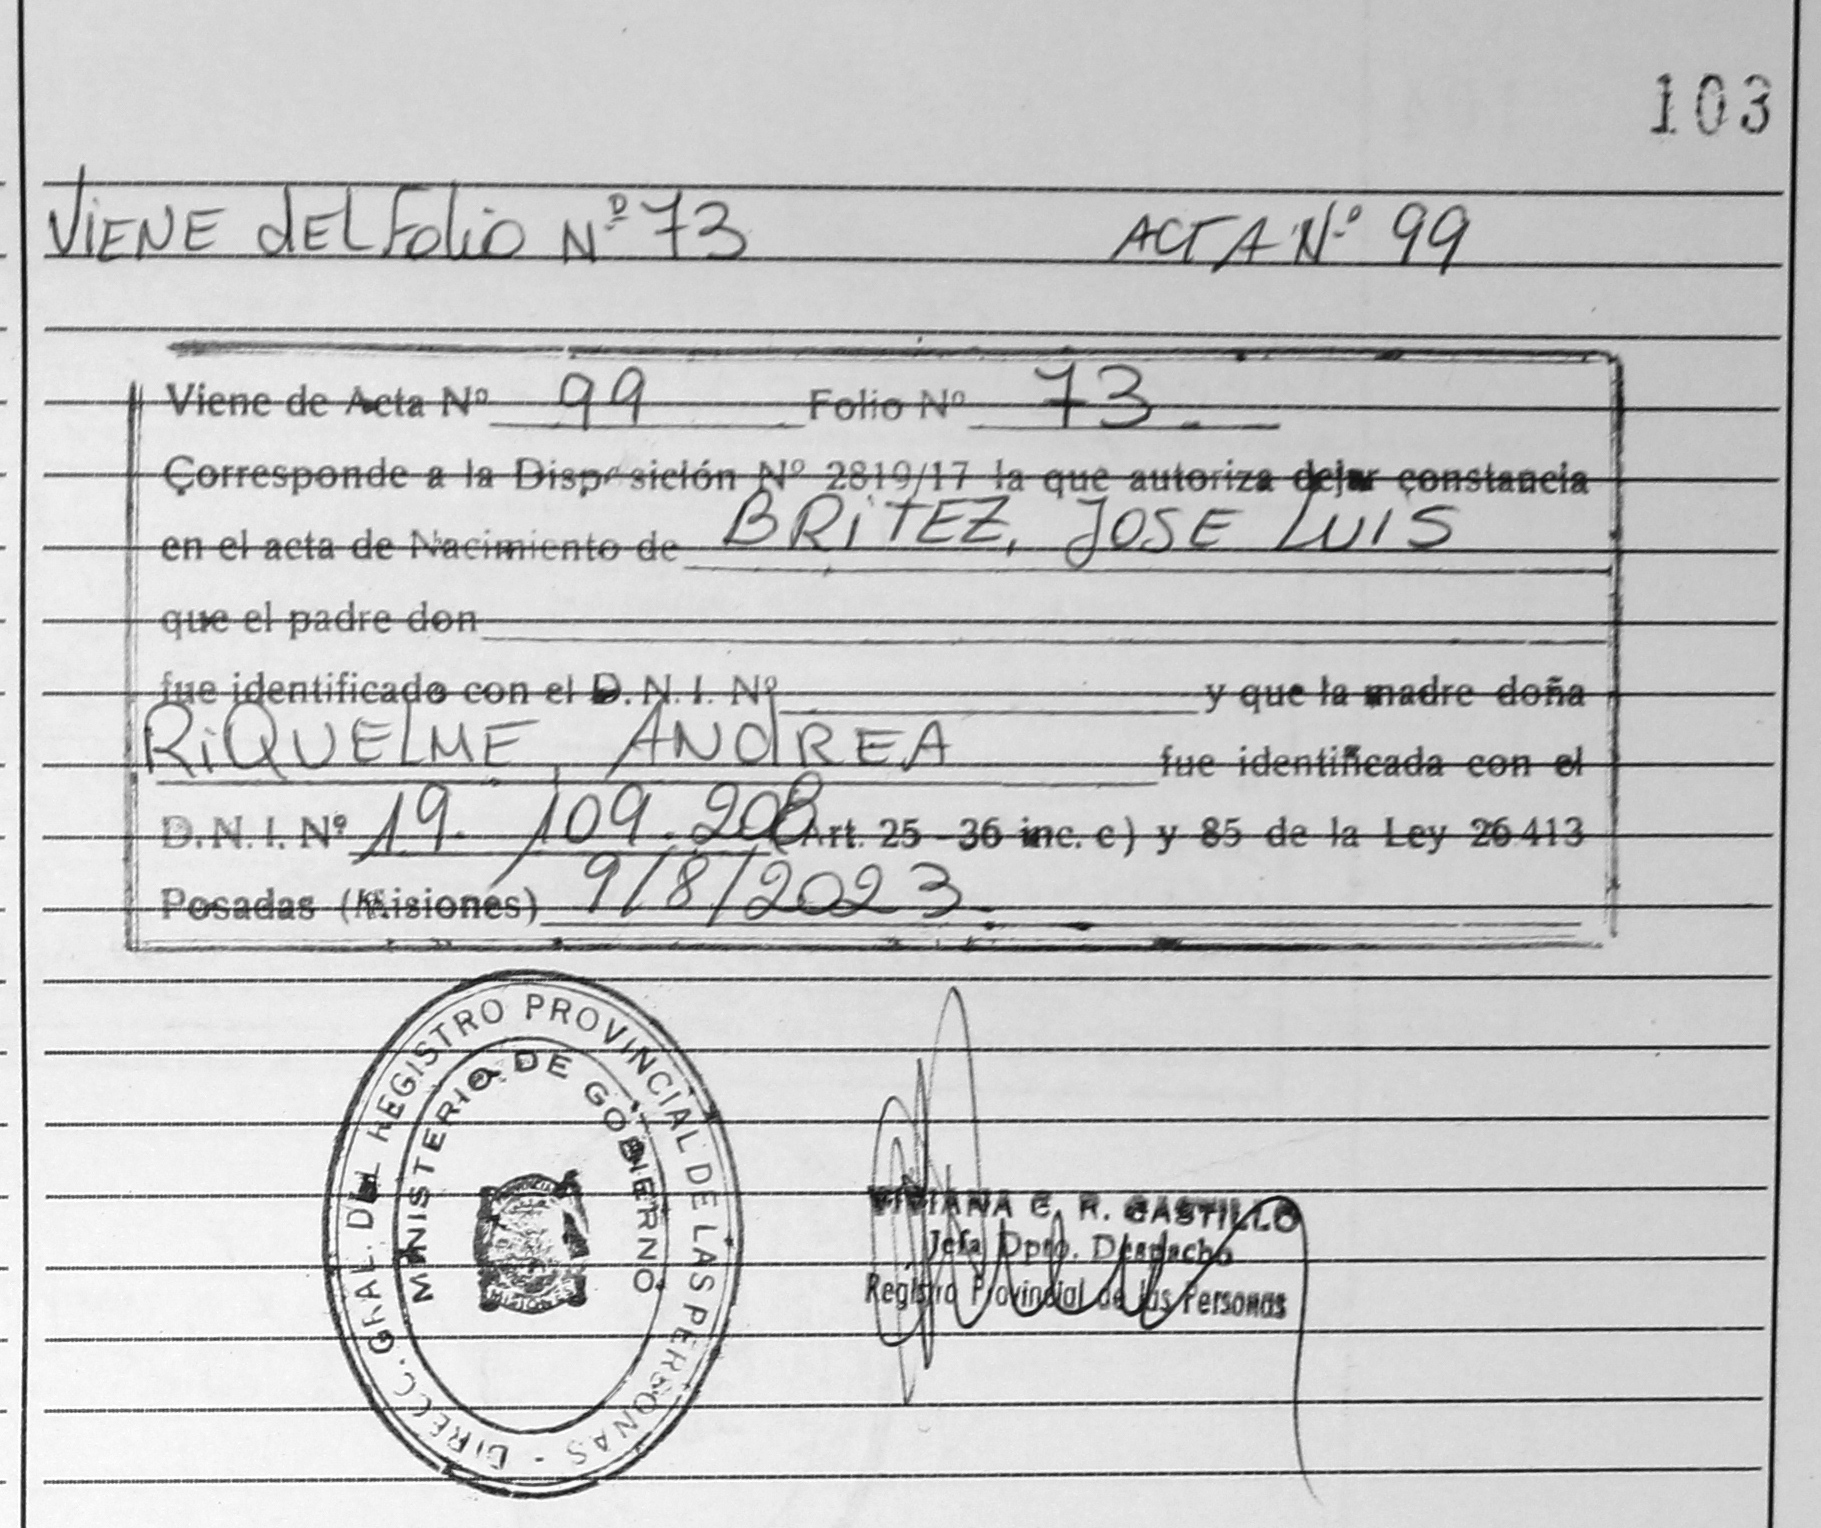 103
ViENE dEL Folio Nº 73 ACTA Nº 99
Viene de Acta Nº 99 Folio Nº 73.
Corresponde a la Disposición Nº 2819/17 la que autoriza dejar constancia
en el acta de Nacimiento de BRiTEZ, JOSE LUIS
que el padre don
fue identificado con el D.N.I. Nº y que la madre doña
RiQUELME, ANdREA fue identificada con el
D.N.I. Nº 19.109.208 (Art. 25 - 36 inc. c) y 85 de la Ley 26.413
Posadas (Misiones) 9/8/2023.
DIRECC. GRAL. DEL REGISTRO PROVINCIAL DE LAS PERSONAS -
MINISTERIO DE GOBIERNO
MISIONES
VIVIANA C. R. CASTILLO
Jefa Dpto. Despacho
Registro Provincial de las Personas